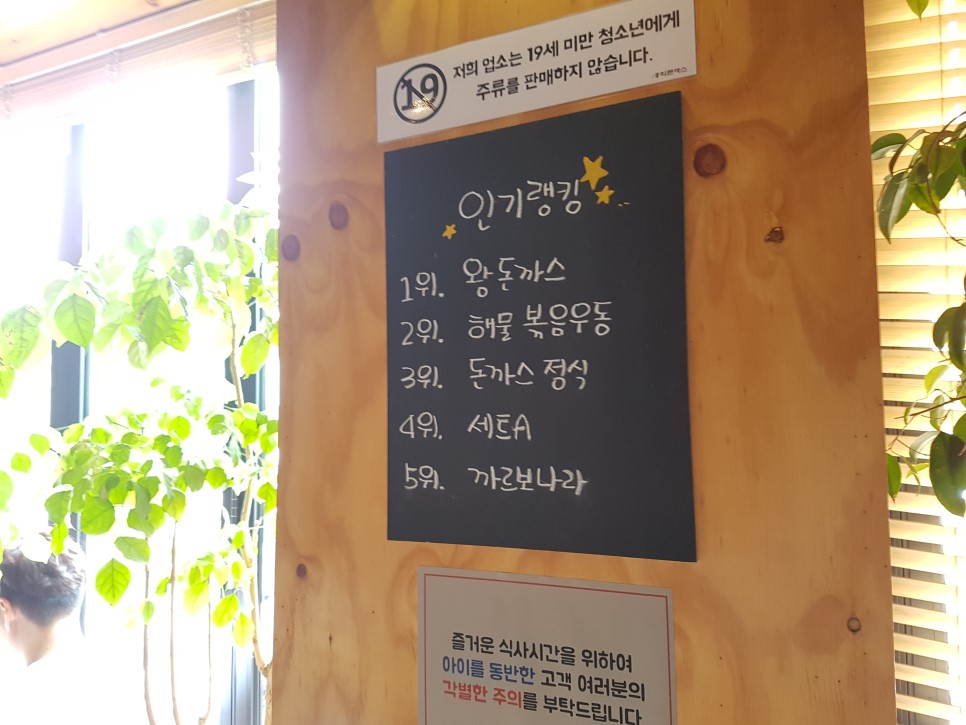 19
저희 업소는 19세 미만 청소년에게
주류를 판매하지 않습니다.
인기랭킹
1위. 왕돈까스
2위. 해물 볶음우동
3위. 돈까스 정식
4위. 세트A
5위. 까르보나라
즐거운 식사시간을 위하여
아이를 동반한 고객 여러분의
각별한 주의를 부탁드립니다